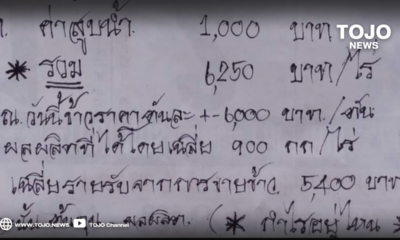 ค่าสูบน้ำ. 1,000 บาท
TOJO
NEWS
* รวม 6,250 บาท/ไร่
ณ. วันนี้ข้าวราคาตันละ +-6,000 บาท./ตัน
ผลผลิตที่ได้โดยเฉลี่ย 900 กก/ไร่
เฉลี่ยรายรับจากการขายข้าว 5,400 บาท
ผลผลิต. (* กำไรอยู่ไหน
WWW.TOJO.NEWS TOJO Channel